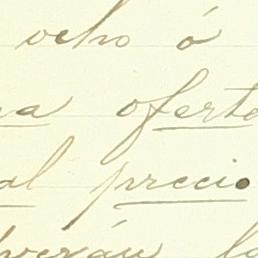 ocho ó
a oferta
al precio
verán